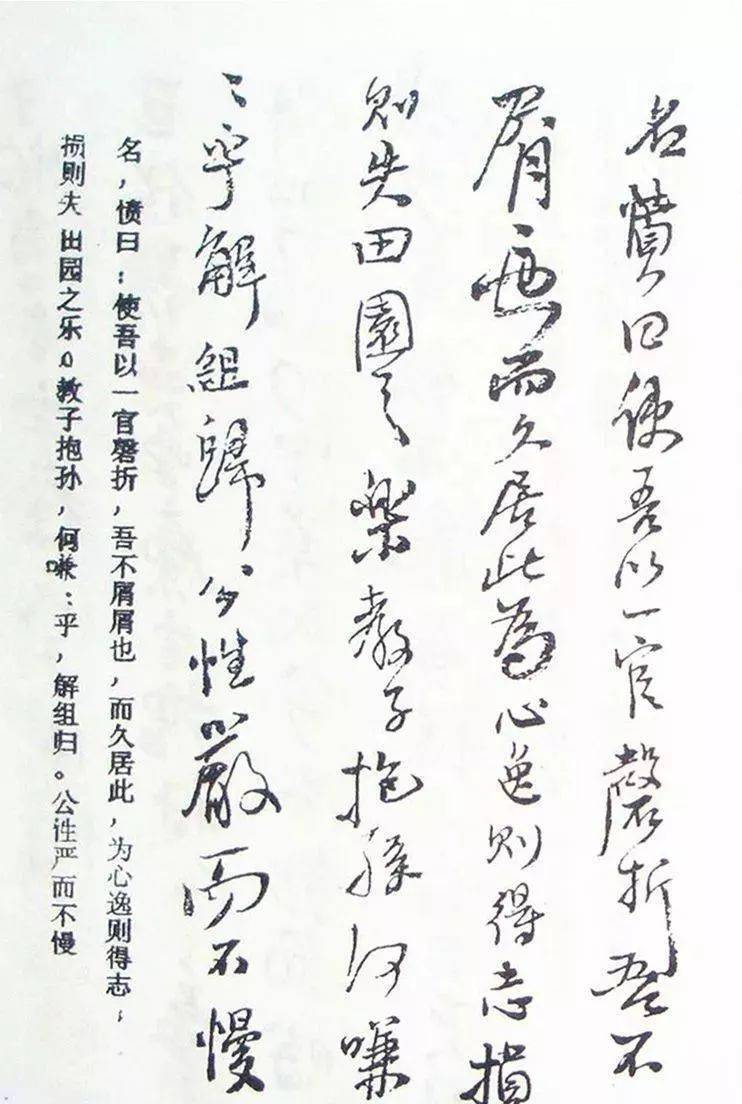 名憤曰使吾以一官磬折吾不
屑也而久居此為心逸則得志損
則失田園之樂教子抱孫何嗛
〻乎解組歸公性嚴而不慢
名，愤曰：使吾以一官磬折，吾不屑屑也，而久居此，为心逸则得志，
损则失田园之乐。教子抱孙，何嗛：乎，解组归。公性严而不慢